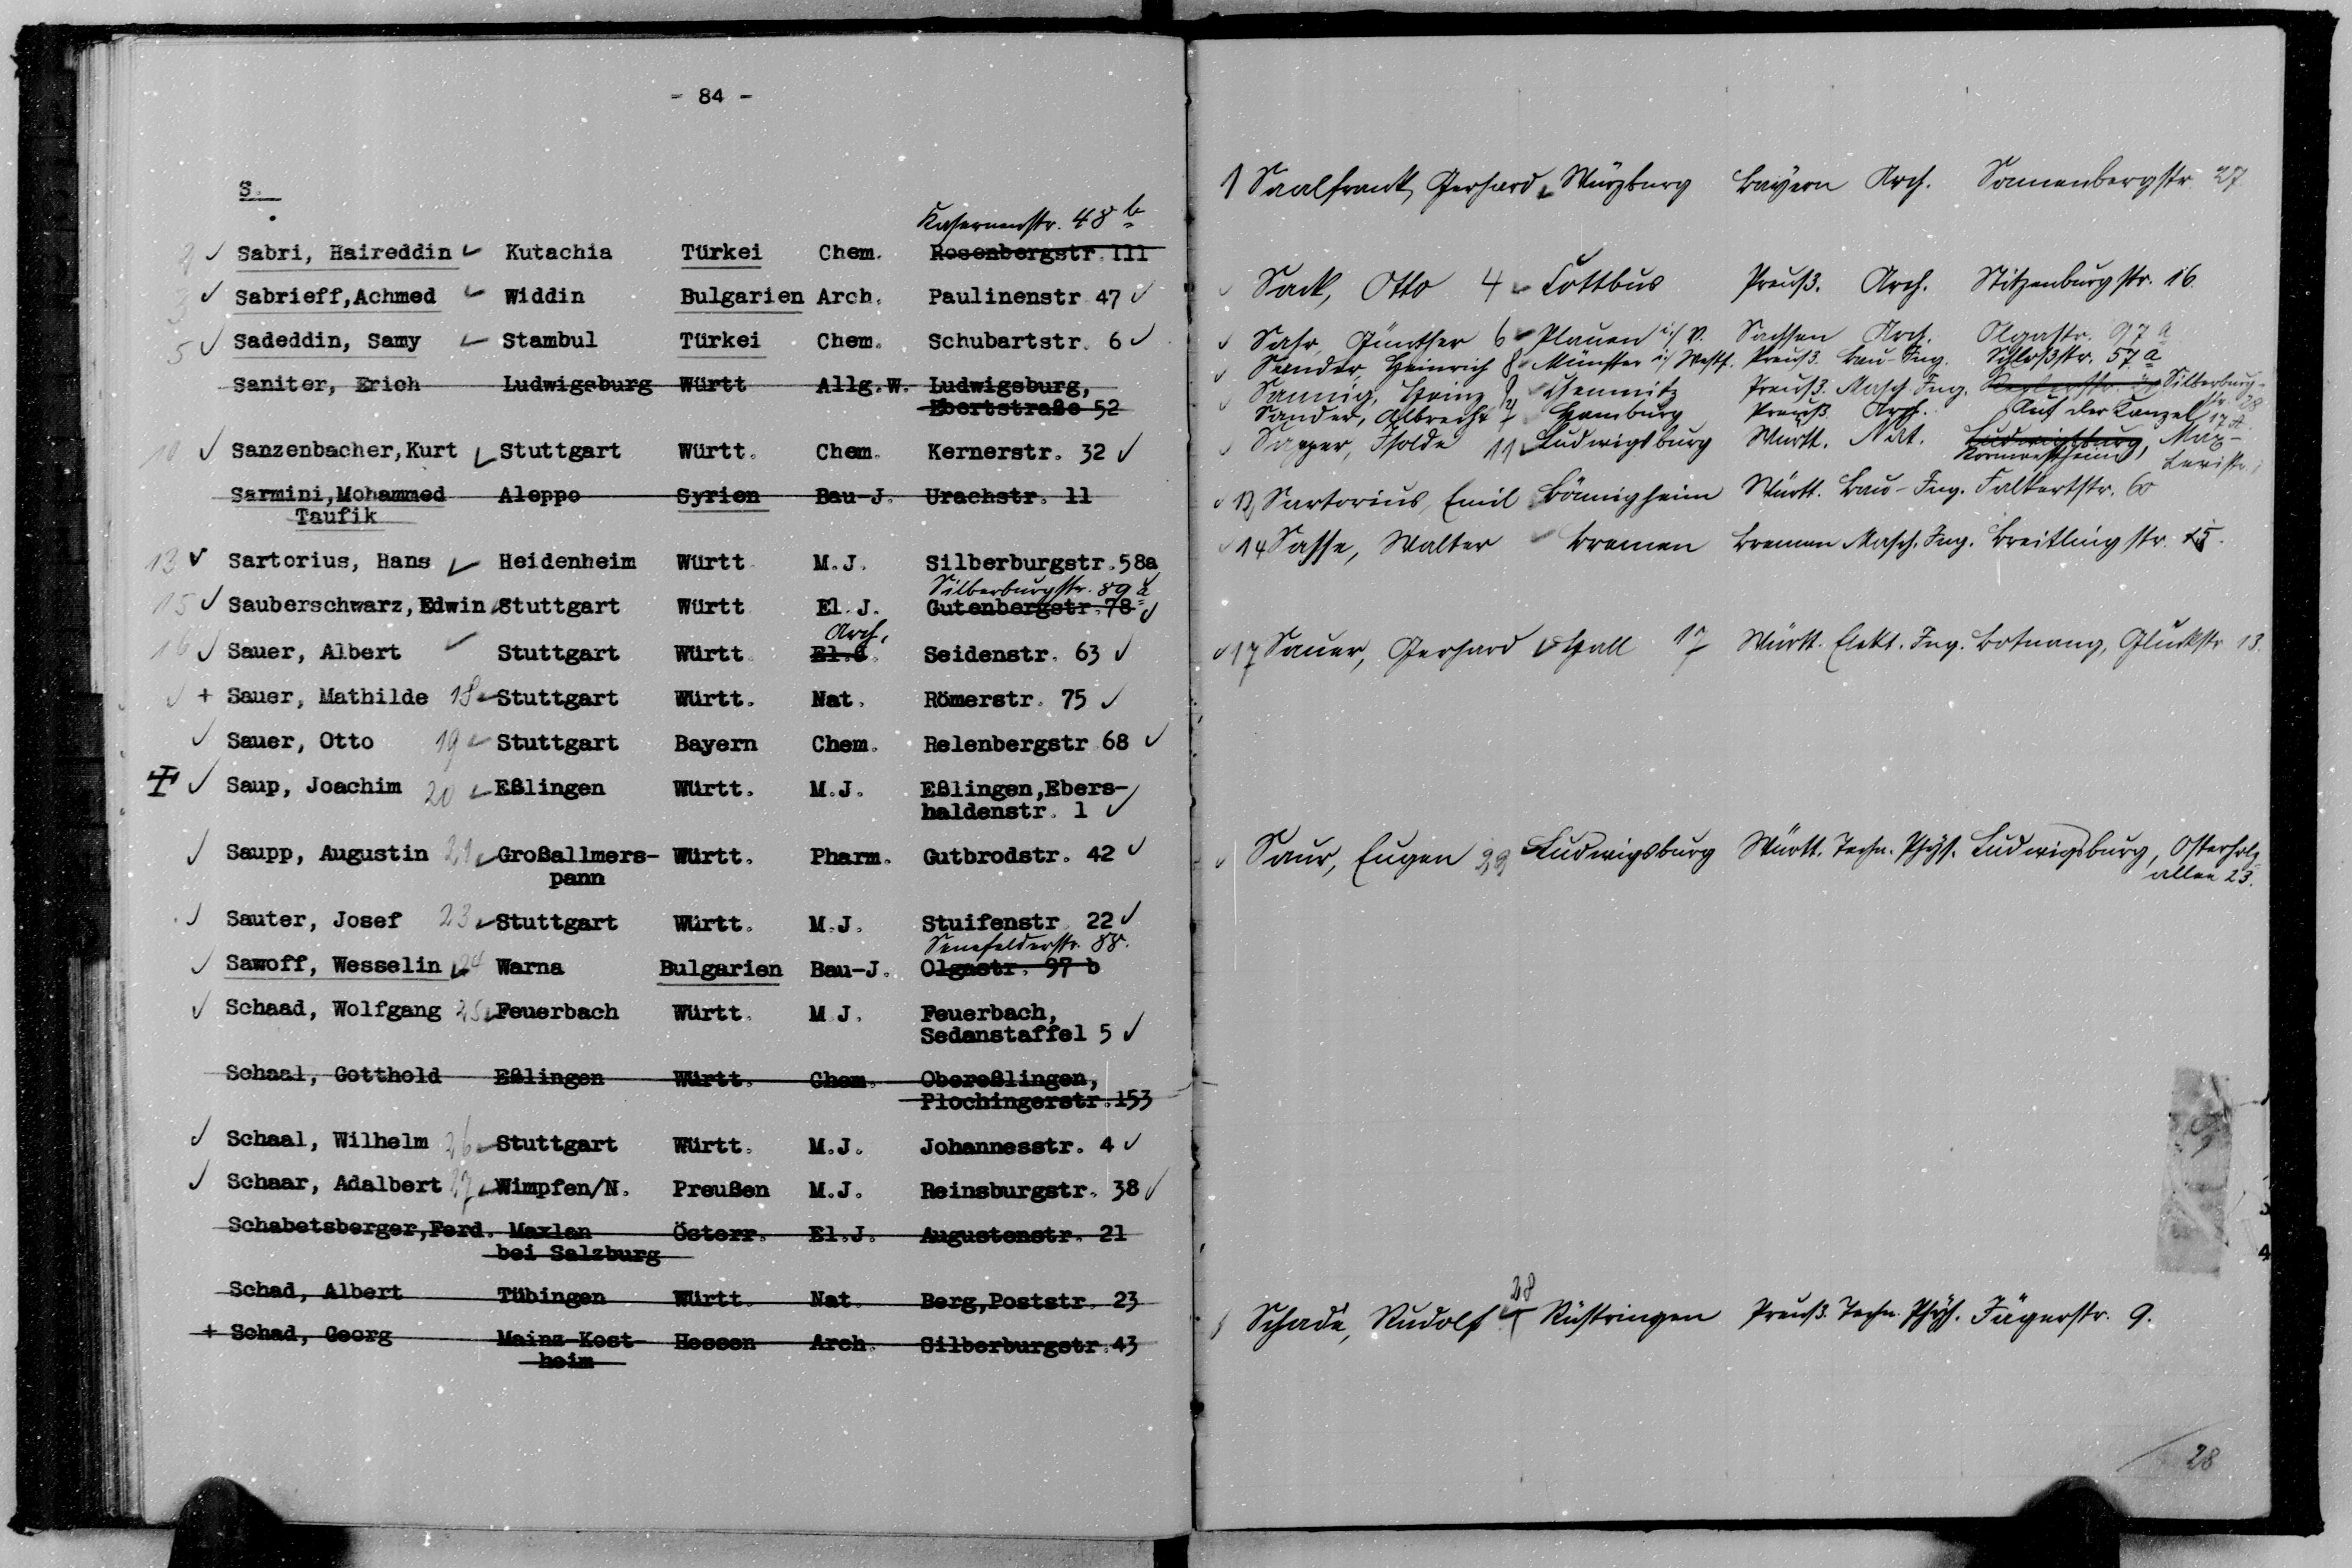 - 84 -
S.
Kasernenstr. 48 b
2 ✓ Sabri, Haireddin ✓ Kutachia Türkei Chem. Rosenbergstr. 111
3 ✓ Sabrieff, Achmed ✓ Widdin Bulgarien Arch. Paulinenstr 47 ✓
5 ✓ Sadeddin, Samy ✓ Stambul Türkei Chem. Schubartstr. 6 ✓
Saniter, Erich Ludwigsburg Württ Allg.W. Ludwigsburg,
Ebertstraße 52
10 ✓ Sanzenbacher, Kurt ✓ Stuttgart Württ. Chem. Kernerstr. 32 ✓
Sarmini, Mohammed Aleppo Syrien Bau-J. Urachstr. 11
Taufik
13 ✓ Sartorius, Hans ✓ Heidenheim Württ M.J. Silberburgstr. 58a
Silberburgstr. 89 a
15 ✓ Sauberschwarz, Edwin Stuttgart Württ El.J. Gutenbergstr. 78 ✓
Arch.
16 ✓ Sauer, Albert ✓ Stuttgart Württ El. Seidenstr. 63 ✓
✓ + Sauer, Mathilde 18 ✓ Stuttgart Württ. Nat. Römerstr. 75 ✓
✓ Sauer, Otto 19 ✓ Stuttgart Bayern Chem. Relenbergstr 68 ✓
✓ Saup, Joachim 20 ✓ Eßlingen Württ. M.J. Eßlingen, Ebers-
haldenstr. 1 ✓
✓ Saupp, Augustin 21 ✓ Großallmers- Württ. Pharm. Gutbrodstr. 42 ✓
pann
✓ Sauter, Josef 23 ✓ Stuttgart Württ. M.J. Stuifenstr 22 ✓
Senefelderstr. 88.
✓ Sawoff, Wesselin 24 Warna Bulgarien Bau-J. Olgastr. 97 b
✓ Schaad, Wolfgang 25 ✓ Feuerbach Württ. M.J. Feuerbach,
Sedanstaffel 5 ✓
Schaal, Gotthold Eßlingen Württ. Chem. Obereßlingen,
Plochingerstr. 153
✓ Schaal, Wilhelm 26 ✓ Stuttgart Württ. M.J. Johannesstr. 4 ✓
✓ Schaar, Adalbert 27 ✓ Wimpfen/N. Preußen M.J. Reinsburgstr. 38 ✓
Schabetsberger, Ferd. Maxlan Österr. El.J. Augustenstr. 21
bei Salzburg
Schad, Albert Tübingen Württ. Nat. Berg, Poststr. 23
+ Schad, Georg Mainz-Kost- Hessen Arch. Silberburgstr. 43
heim
1 Saalfrank, Gerhard ✓ Würzburg Bayern Arch. Sonnenbergstr. 27
✓ Sack, Otto 4 ✓ Cottbus Preuß. Arch. Stitzenburgstr. 16.
✓ Sahr, Günther 6 ✓ Plauen i/V. Sachsen Arch. Olgastr. 97 a
✓ Sander, Heinrich 8 ✓ Münster i/ Westf. Preuß. Bau-Ing. Schloßstr. 57 a
✓ Sannig, Heinz 9 Chemnitz Preuß. Masch. Ing. Silberburg-
str. 28
Sander, Albrecht 7 Hamburg Preuß. Arch. Auf der Kanzel 17 A
✓ Sapper, Isolde 11 ✓ Ludwigsburg Württ. Nat. Ludwigsburg, Max-
Kornwestheim,
✓ 12 Sartorius, Emil Bönnigheim Württ. Bau-Ing. Falkertstr. 60
✓ 14 Sasse, Walter ✓ Bremen Bremen Masch. Ing. Breitlingstr. 15.
✓ 17 Sauer, Gerhard ✓ Hall 17 Württ. Elekt. Ing. Botnang, Gluckstr 13.
✓ Saur, Eugen 22 Ludwigsburg Württ. Techn. Phys. Ludwigsburg, Osterholz-
allee 23.
28
Schade, Rudolf Rüstringen Preuß. Techn. Phys. Jägerstr. 9.
28